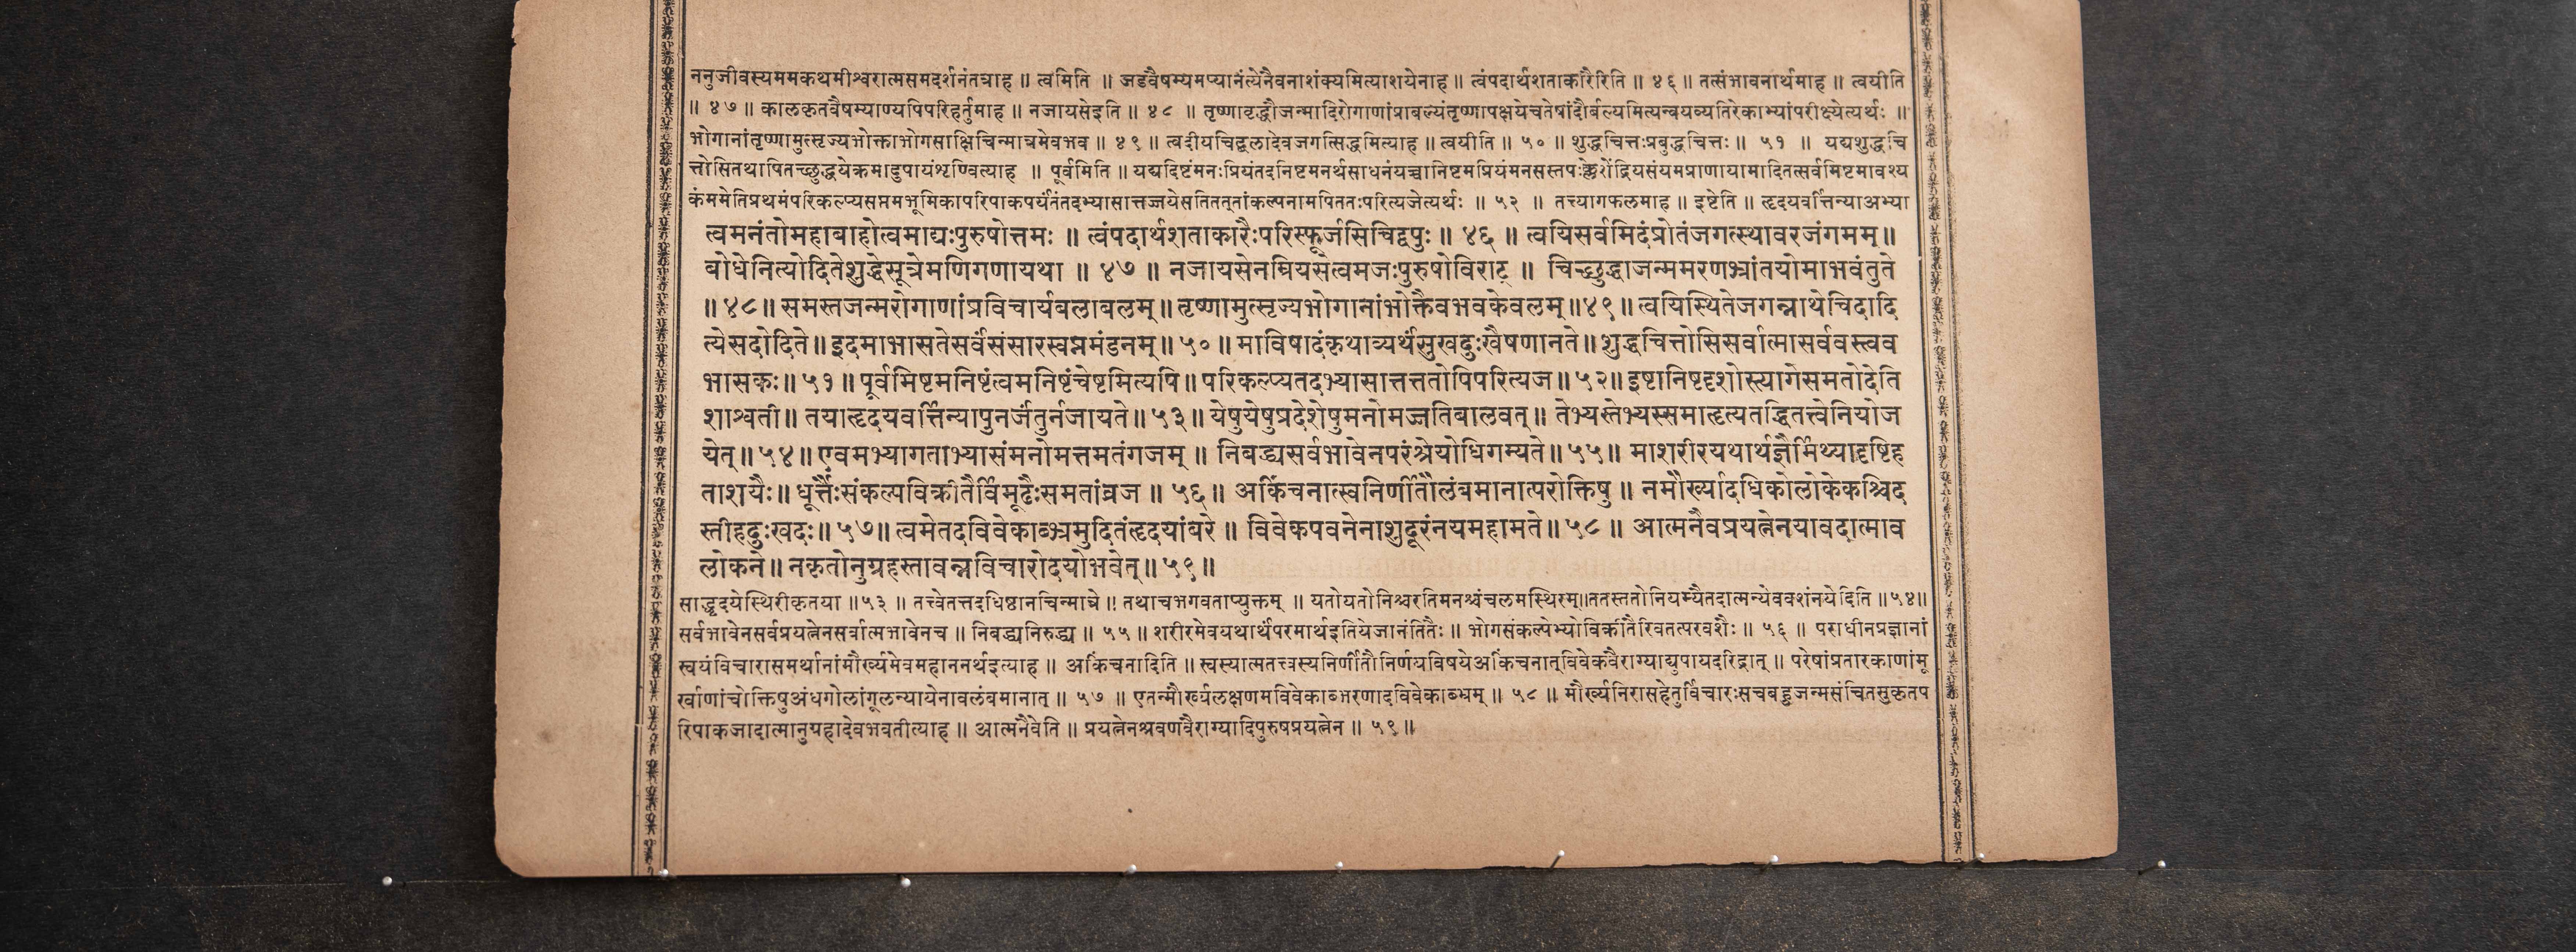 ननुजीवस्यममकथमीश्वरात्मसमदर्शनंतत्राह ॥ त्वमिति ॥ जडवैषम्यमप्यानंत्येनैवनाशंक्यमित्याशयेनाह ॥ त्वंपदार्थशताकारैरिति ॥ ४६ ॥ तत्संभावनार्थमाह ॥ त्वयीति
॥ ४७ ॥ कालकृतवैषम्याण्यपिपरिहर्तुमाह ॥ नजायसेइति ॥ ४८ ॥ तृष्णावृद्धौजन्मादिरोगाणांप्राबल्यंतृष्णापक्षयेचतेषांदौर्बल्यमित्यन्वयव्यतिरेकाभ्यांपरीक्ष्येत्यर्थः ॥
भोगानांतृष्णामुत्सृज्यभोक्ताभोगसाक्षिचिन्मात्रमेवभव ॥ ४९ ॥ त्वदीयचिद्बलादेवजगत्सिद्धमित्याह ॥ त्वयीति ॥ ५० ॥ शुद्धचित्तःप्रबुद्धचित्तः ॥ ५१ ॥ यद्यशुद्धचि
त्तोसितथापितच्छुद्धयेक्रमादुपायंशृण्वित्याह ॥ पूर्वमिति ॥ यद्यदिष्टंमनःप्रियंतदनिष्टमनर्थसाधनंयच्चानिष्टमप्रियंमनसस्तपःक्लेशेंद्रियसंयमप्राणायामादितत्सर्वमिष्टमावश्य
कंममेतिप्रथमंपरिकल्प्यसप्तमभूमिकापरिपाकपर्यंतंतदभ्यासात्तज्जयेसतितत्तांकल्पनामपिततःपरित्यजेत्यर्थः ॥ ५२ ॥ तत्त्यागफलमाह ॥ इष्टेति ॥ हृदयवर्त्तिन्याअभ्या
त्वमनंतोमहाबाहोत्वमाद्यःपुरुषोत्तमः ॥ त्वंपदार्थशताकारैःपरिस्फूर्जसिचिद्वपुः ॥ ४६ ॥ त्वयिसर्वमिदंप्रोतंजगत्स्थावरजंगमम् ॥
बोधेनित्योदितेशुद्धेसूत्रेमणिगणायथा ॥ ४७ ॥ नजायसेनम्रियसेत्वमजःपुरुषोविराट् ॥ चिच्छुद्धाजन्ममरणभ्रांतयोमाभवंतुते
॥ ४८ ॥ समस्तजन्मरोगाणांप्रविचार्यबलाबलम् ॥ तृष्णामुत्सृज्यभोगानांभोक्तैवभवकेवलम् ॥४९॥ त्वयिस्थितेजगन्नाथेचिदादि
त्येसदोदिते ॥ इदमाभासतेसर्वंसंसारस्वप्नमंडनम् ॥ ५० ॥ माविषादंकृथाव्यर्थंसुखदुःखैषणानते ॥ शुद्धचित्तोसिसर्वात्मासर्ववस्त्वव
भासकः ॥ ५१ ॥ पूर्वमिष्टमनिष्टंत्वमनिष्टंचेष्टमित्यपि ॥ परिकल्प्यतदभ्यासात्तत्ततोपिपरित्यज ॥ ५२ ॥ इष्टानिष्टदृशोस्त्यागेसमतोदेति
शाश्वती ॥ तयाहृदयवर्त्तिन्यापुनर्जंतुर्नजायते ॥ ५३ ॥ येषुयेषुप्रदेशेषुमनोमज्जतिबालवत् ॥ तेभ्यस्तेभ्यस्समाहृत्यतद्धितत्त्वेनियोज
येत् ॥ ५४ ॥ एवमभ्यागताभ्यासंमनोमत्तमतंगजम् ॥ निबद्ध्यसर्वभावेनपरंश्रेयोधिगम्यते ॥ ५५ ॥ माशरीरयथार्थज्ञैर्मिथ्यादृष्टिह
ताशयैः ॥ धूर्त्तैःसंकल्पविक्रीतैर्विमूढैःसमतांव्रज ॥ ५६ ॥ अकिंचनात्स्वनिर्णीतौलंबमानात्परोक्तिषु ॥ नमौर्ख्यादधिकोलोकेकश्चिद
स्तीहदुःखदः ॥ ५७ ॥ त्वमेतदविवेकाब्भ्रमुदितंहृदयांबरे ॥ विवेकपवनेनाशुदूरंनयमहामते ॥ ५८ ॥ आत्मनैवप्रयत्नेनयावदात्माव
लोकने ॥ नकृतोनुग्रहस्तावन्नविचारोदयोभवेत् ॥ ५९ ॥
साद्धृदयेस्थिरीकृतया ॥५३ ॥ तत्त्वेतत्तदधिष्ठानचिन्मात्रे ॥ तथाचभगवताप्युक्तम् ॥ यतोयतोनिश्चरतिमनश्चंचलमस्थिरम्॥ततस्ततोनियम्यैतदात्मन्येववशंनयेदिति ॥५४॥
सर्वभावेनसर्वप्रयत्नेनसर्वात्मभावेनच ॥ निबद्ध्यनिरुद्ध्य ॥ ५५ ॥ शरीरमेवयथार्थंपरमार्थइतियेजानंतितैः ॥ भोगसंकल्पेभ्योविक्रीतैरिवतत्परवशैः ॥ ५६ ॥ पराधीनप्रज्ञानां
स्वयंविचारासमर्थानांमौर्ख्यमेवमहाननर्थइत्याह ॥ अकिंचनादिति ॥ स्वस्यात्मतत्त्वस्यनिर्णीतौनिर्णयविषयेअकिंचनात्विवेकवैराग्याद्युपायदरिद्रात् ॥ परेषांप्रतारकाणांमू
र्खाणांचोक्तिषुअंधगोलांगूलन्यायेनावलंबमानात् ॥ ५७ ॥ एतन्मौर्ख्यलक्षणमविवेकाब्भरणादविवेकाब्भ्रम् ॥ ५८ ॥ मौर्ख्यनिरासहेतुर्विचारःसचबहुजन्मसंचितसुकृतप
रिपाकजादात्मानुग्रहादेवभवतीत्याह ॥ आत्मनैवेति ॥ प्रयत्नेनश्रवणवैराग्यादिपुरुषप्रयत्नेन ॥ ५९ ॥